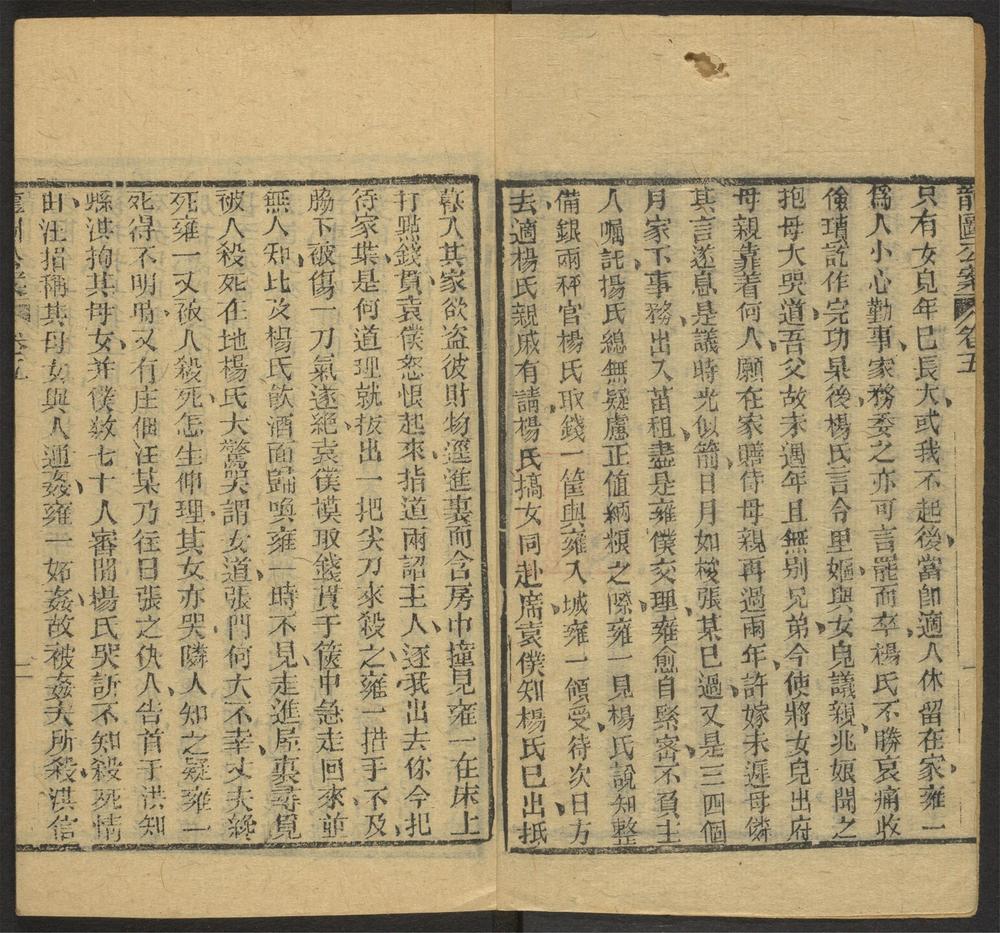 龍圖公案 卷五
只有女兒年已長大或我不起後當卽適人休留在家雍一
爲人小心勤事家務委之亦可言罷而卒楊氏不勝哀痛收
後瓊訖作完功果後楊氏言令里嫗與女兒議親兆娘聞之
抱母大哭道吾父故未週年且無別兄弟今使將女兒出府
母親靠着何人願在家賸侍母親再過兩年許嫁未遲母憐
其言遂息是議時光似箭日月如梭張某已過又是三四個
月家下事務出入苗租盡是雍僕交理雍愈自緊密不負主
人囑託揚氏總無疑慮正值納糧之際雍一見楊氏說知整
備銀兩秤官楊氏取錢一筐與雍入城雍一領受待次日方
去適楊氏親戚有請楊氏搞女同赴席袁僕知楊氏已出抵
歡入其家欲盗彼財物逕進裏面舍房中撞見雍一在床上
打點錢貫袁僕怒恨起來指道雨諂主人逐我出去你今把
侍家葉是何道理就拔出一把尖刀來殺之雍一措手不及
脇下被傷一刀氣遂絕袁僕模取錢貫于篋中急走回來並
無人知比及楊氏飲酒面歸喚雍一時不見走進屋裏尋覓
被人殺死在地楊氏大驚哭謂女道張門何大不幸丈夫纔
死雍一又被人殺死怎生伸理其女亦哭隣人知之疑雍一
死得不明另又有庄佃汪某乃往日張之仇人告首于洪知
縣洪拘其母女并僕数七十人審問楊氏哭訴不知殺死情
由汪招稱其母女與人通姦雍一妬姦故被姦夫所殺洪信
卷五